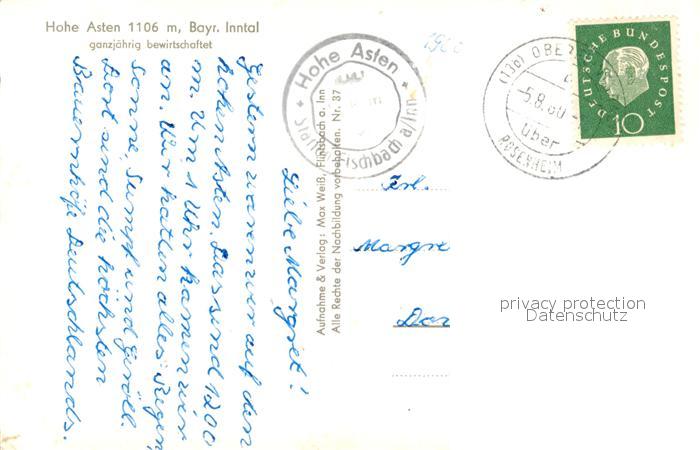 Hohe Asten 1106 m, Bayr. Inntal
ganzjährig bewirtschaftet
Liebe Margret!
Gestern waren wir auf den
hohen Asten. Das sind 1200
m. Um 1 Uhr kamen wir
an. Wir hatten alles: Regen,
Sonne, Sumpf und Geröll.
Dort sind die höchsten
Bauernhöfe Deutschlands.
Aufnahme & Verlag: Max Weiß, Flintsbach a. Inn
Alle Rechte der Nachbildung vorbehalten. Nr. 37
Hohe Asten
a/Inn
Frl.
Margre
Dar
(13b) OBER
-5.8.60
über
ROSENHEIM
DEUTSCHE BUNDESPOST
10
privacy protection
Datenschutz